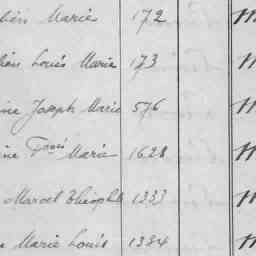 Marie 172
Louis Marie 173
ine Joseph Marie 576
ine Frois Marie 1628
Marcel Théophile 1333
Marie Louis 1384